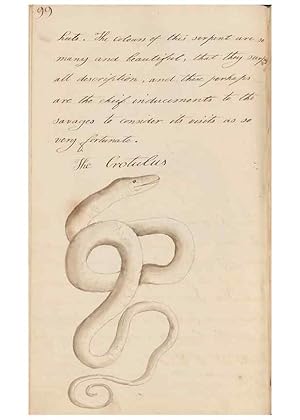 99
huts. The colours of this serpent are so
many and beautiful, that they surpass
all description, and these perhaps
are the cheif inducements to the
savages to consider its visits as so
very fortunate.
The Crotulus